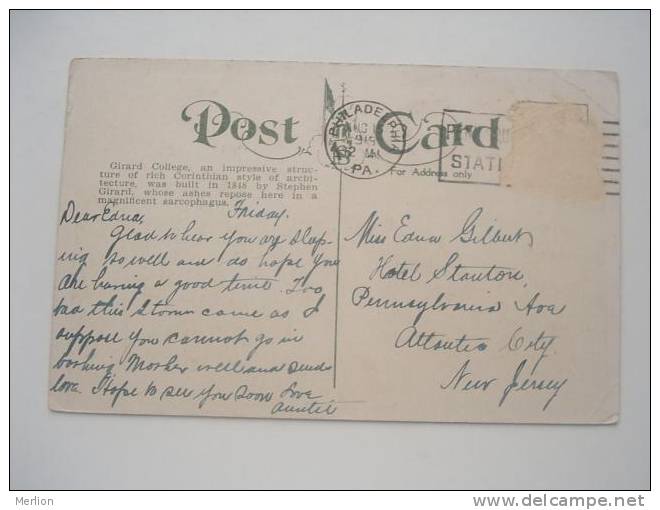 Post Card
PHILADELPHIA
PA.
STATI
Girard College, an impressive struc-
ture of rich Corinthian style of archi-
tecture, was built in 1848 by Stephen
Girard, whose ashes repose here in a
magnificent sarcophagus.
For Address only
Friday.
Dear Edna,
Glad to hear you are sleep-
ing so well and do hope you
are having a good time. Too
bad this storm came as I
suppose you cannot go in
bathing Mother well and sends
love. Hope to see you soon Love
Auntie
Miss Edna Gilbert
Hotel Stanton,
Pennsylvania Ave
Atlantic City.
New Jersey
Merlion
delcampe.net